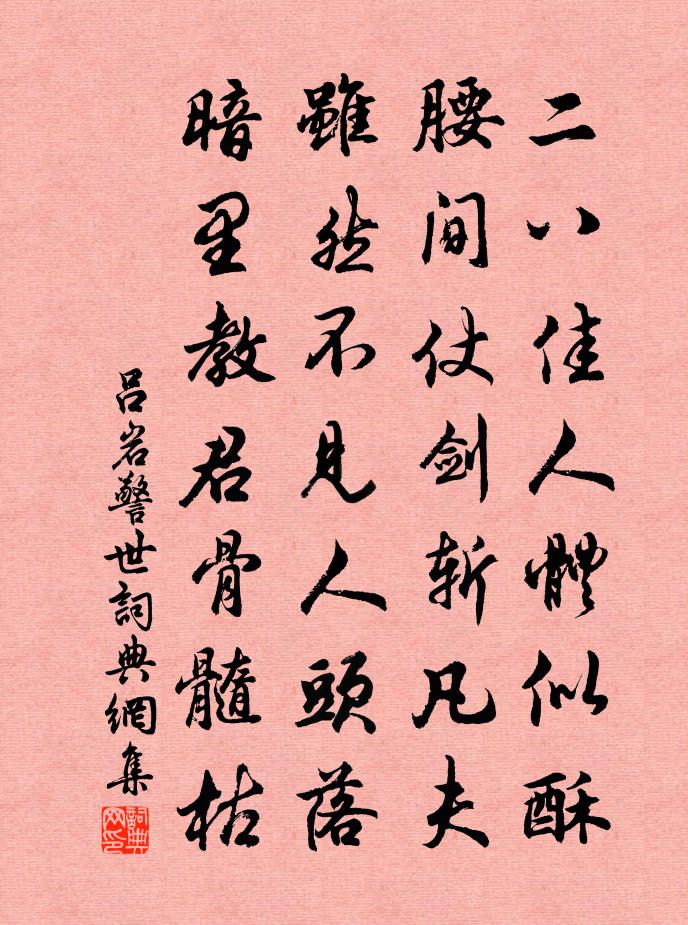 二八佳人體似酥
腰间仗劍斬凡夫
雖然不見人頭落
暗里教君骨髓枯
吕岩警世詞典網集
詞典网印